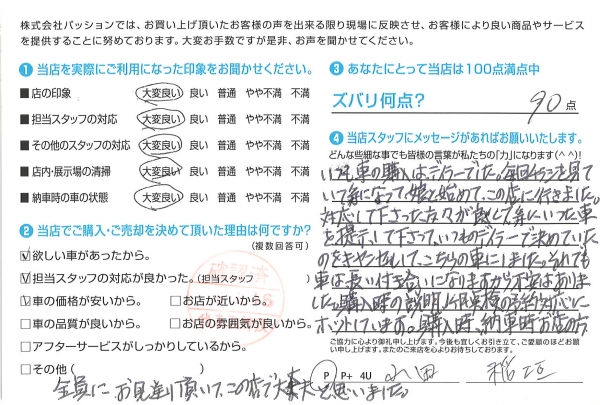 株式会社パッションでは、お買い上げ頂いたお客様の声を出来る限り現場に反映させ、お客様により良い商品やサービス
を提供することに努めております。大変お手数ですが是非、お声を聞かせてください。
❶ 当店を実際にご利用になった印象をお聞かせください。
■店の印象 大変良い 良い 普通 やや不満 不満
■担当スタッフの対応 大変良い 良い 普通 やや不満 不満
■その他のスタッフの対応 大変良い 良い 普通 やや不満 不満
■店内・展示場の清掃 大変良い 良い 普通 やや不満 不満
■納車時の車の状態 大変良い 良い 普通 やや不満 不満
❷ 当店でご購入・ご売却を決めて頂いた理由は何ですか?
(複数回答可)
☑欲しい車があったから。
☑担当スタッフの対応が良かった。(担当スタッフ
☑車の価格が安いから。 □お店が近いから。
□車の品質が良いから。 □お店の雰囲気が良いから。
□アフターサービスがしっかりしているから。
□その他(
❸ あなたにとって当店は100点満点中
ズバリ何点? 90 点
❹ 当店スタッフにメッセージがあればお願いいたします。
どんな些細な事でも皆様の言葉が私たちの「力」になります(^^)!
いつも車の購入はディーラーでした。毎回チラシを見て
いて気になって娘と始めて、この店に行きました。
対応して下さった方々が良くて気にいった車
を提示して下さって、いつものディーラーで決めていた
のをキャンセルして、こちらの車にしました。それでも
車は長い付き合いになりますから不安はありま
した。購入時の説明、
ホットしています。購入時、納車時お店の方
全員に、お見送り頂いて、この店で大丈夫と思いました。
ご協力に心より御礼申し上げます。今後も宜しくお引き立て、ご愛顧のほどお願
い申し上げます。またのご来店を心よりお待ちしております。
P P+ 4U 山田 稲垣